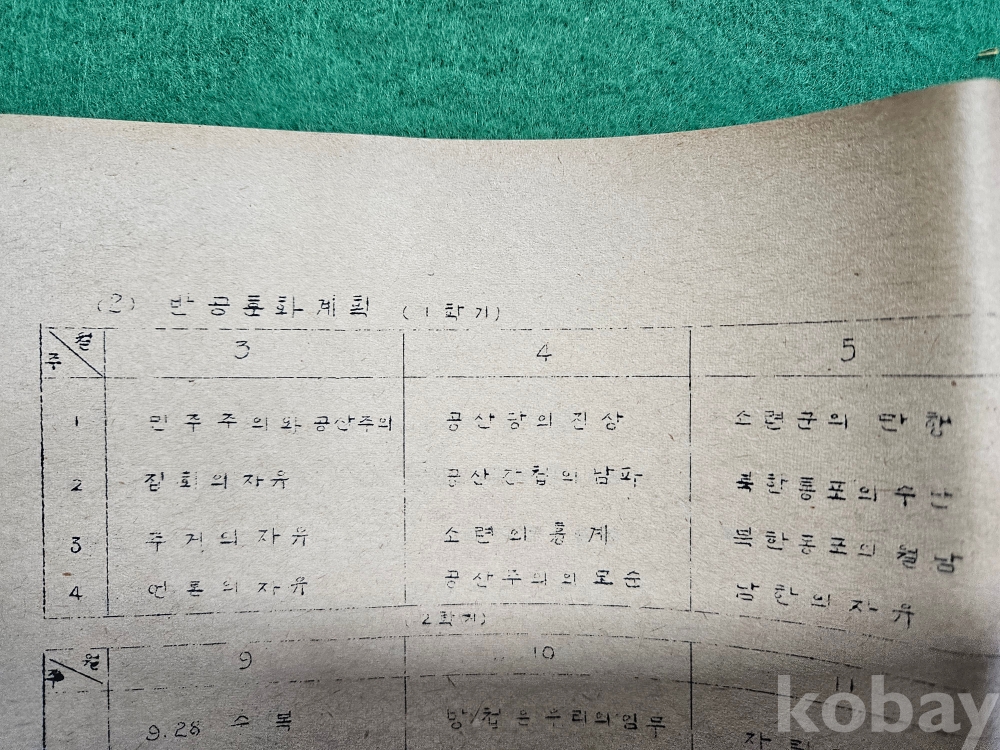 (2) 반공훈화계획 (1학기)
월 주 3 4 5
1 민주주의와 공산주의 공산당의 진상 소련군의 만행
2 집회의 자유 공산간첩의 남파 북한동포의 수난
3 주거의 자유 소련의 흉계 북한동포의 월남
4 언론의 자유 공산주의의 모순 남한의 자유
(2학기)
월 주 9 10 11
9.28 수복 방/첩은 우리의임무
kobay